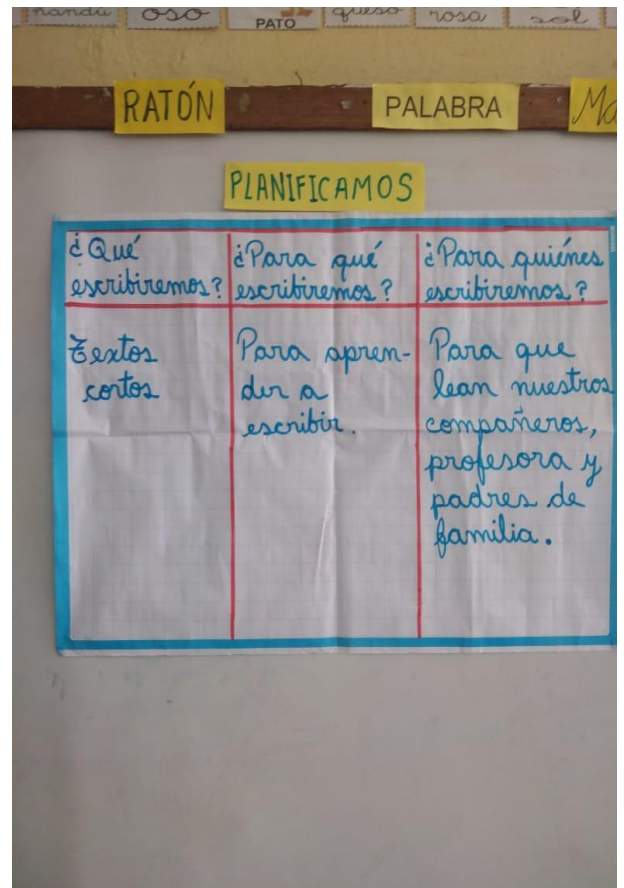 ñandú oso PATO queso rosa sol
RATÓN PALABRA Ma
PLANIFICAMOS
¿Qué
escribiremos?
¿Para qué
escribiremos?
¿Para quiénes
escribiremos?
Textos
cortos
Para apren-
der a
escribir.
Para que
lean nuestros
compañeros,
profesora y
padres de
familia.